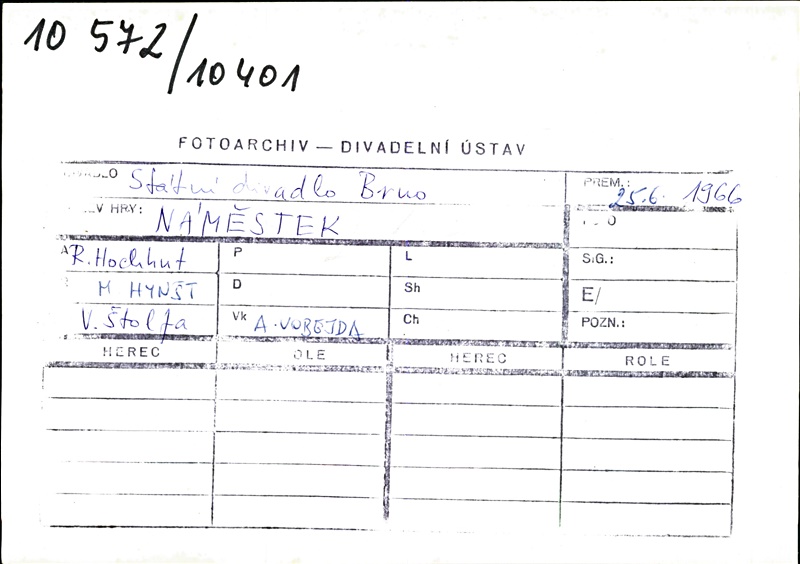 10 572/10401
FOTOARCHIV — DIVADELNÍ ÚSTAV
Státní divadlo Brno
PREM.: 25.6. 1966
V HRY: NÁMĚSTEK
A R. Hochhut P L SIG.:
M HYNŠT D Sh E/
V. Štolfa Vk A. VOBEJDA Ch POZN.:
HEREC OLE HEREC ROLE